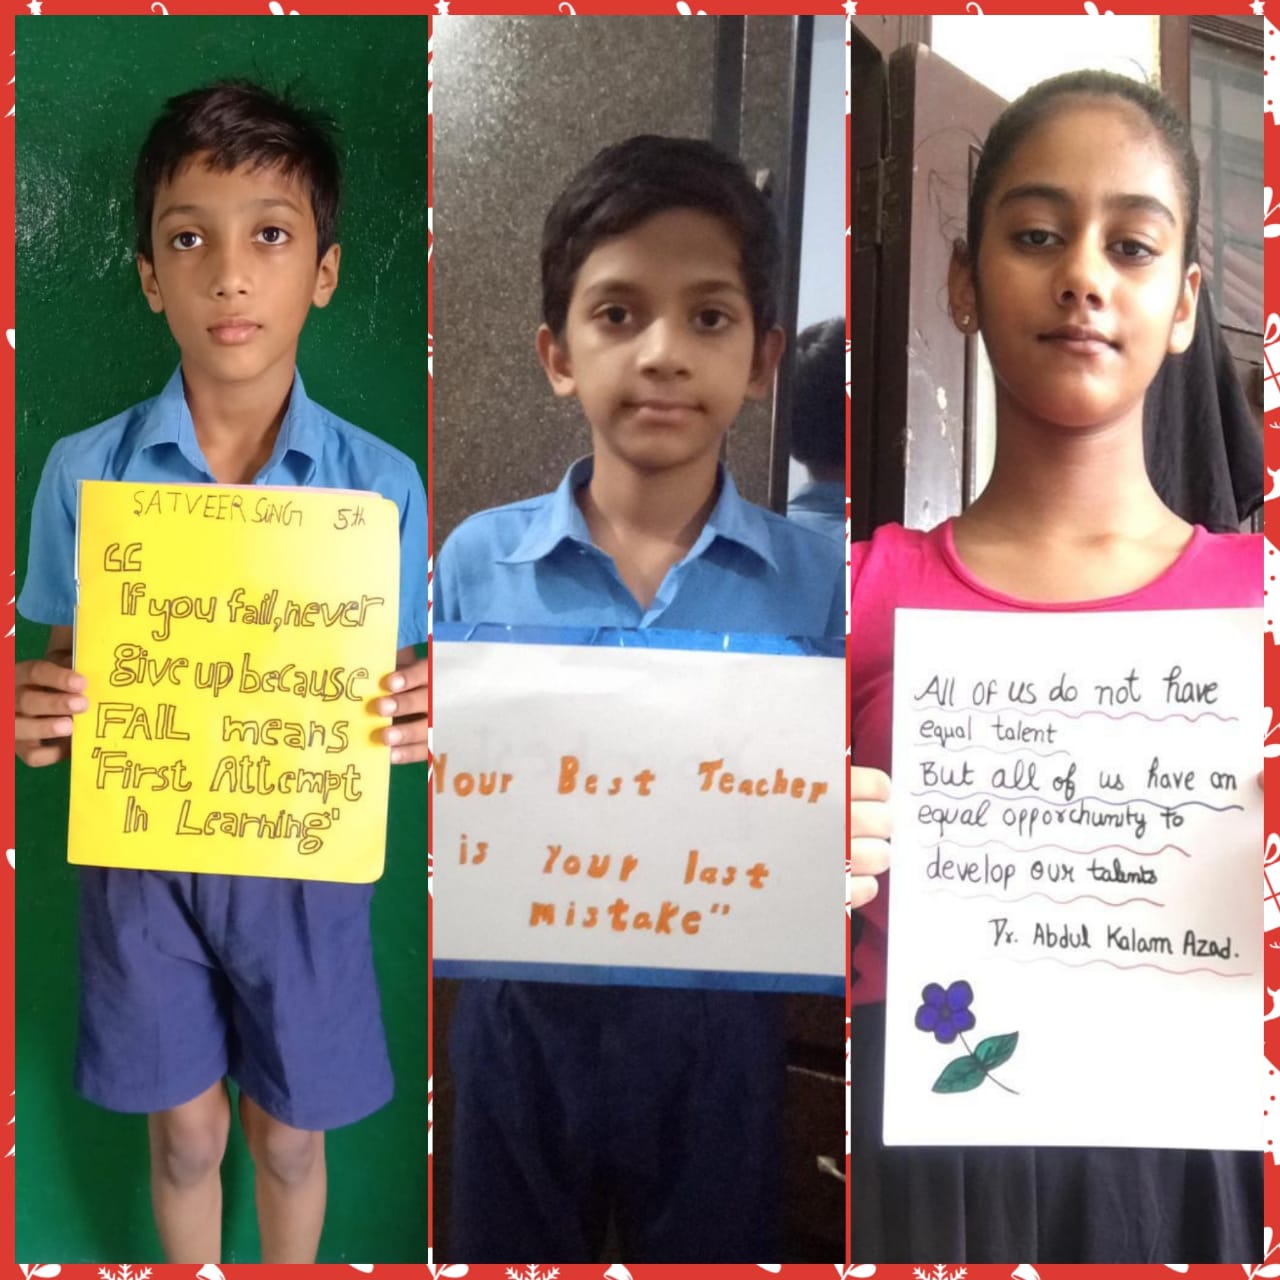 SATVEER SiNG 5th
“
If you fail, never
give up because
FAIL means
'First Attempt
In Learning'
Your Best Teacher
is Your last
mistake”
All of us do not have
equal talent
But all of us have an
equal opporchunity to
develop our talents
Dr. Abdul Kalam Azad.